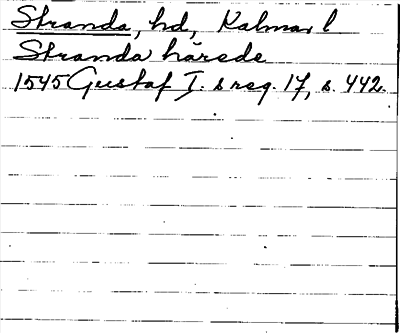 Stranda, hd, Kalmar l
Stranda härede
1545 Gustaf I. s reg. 17, s. 442.